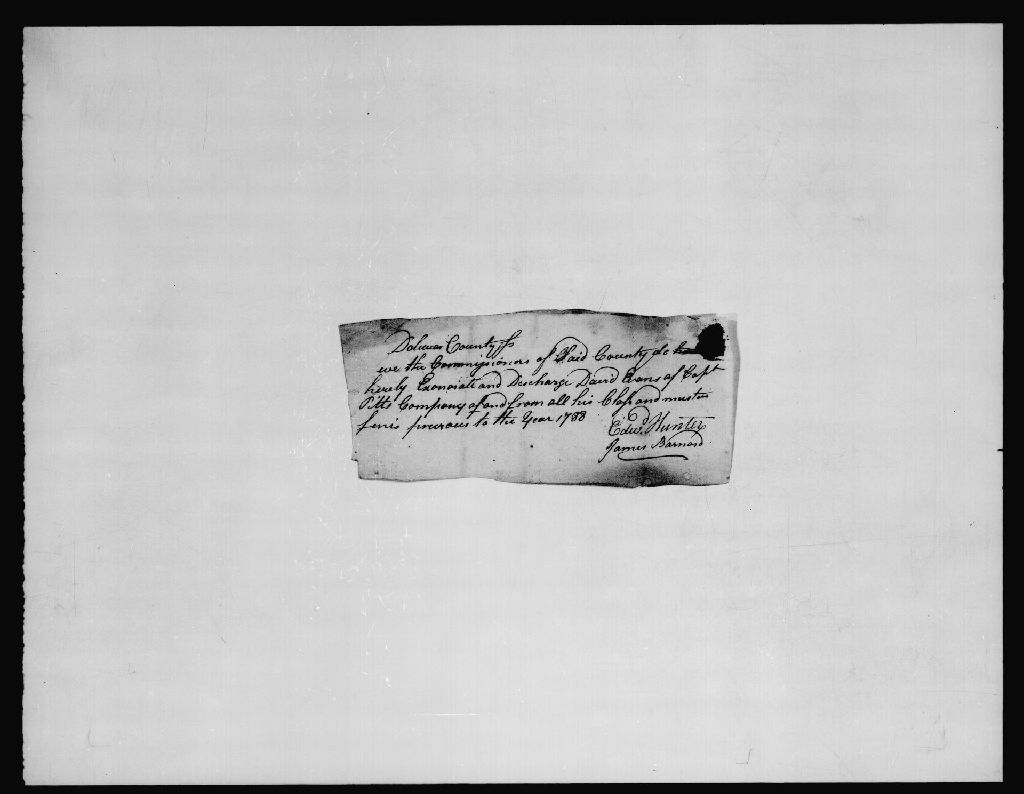 Delawar County ss
we the Commissioners of Said County do
hereby Exonorate and Descharge David Evans of Capt
Pitts Company of and from all his Class and muster
fenis previous to the Year 1788
Edwd. Hunter
James Barnard